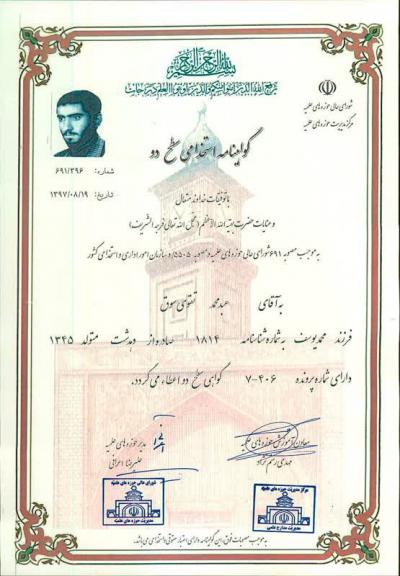 بسم الله الرحمن الرحیم
یرفع الله الذین آمنوا منکم والذین اوتوا العلم درجات
شورای عالی حوزه های علمیه
مرکز مدیریت حوزه های علمیه
گواهینامه استخدامی سطح دو
شماره: ۶۹۱/۳۹۶
تاریخ: ۱۳۹۷/۰۸/۱۹
با توفیقات خداوند متعال
و عنایات حضرت بقیة الله الاعظم (عجل الله تعالی فرجه الشریف)
به موجب مصوبه ۶۹۱ شورای عالی حوزه های علمیه و مصوبه ۵۵۰۵/د سازمان امور اداری و استخدامی کشور
به آقای عبدمحمد تقوای سوق
فرزند محمدیوسف به شماره شناسنامه ۱۸۱۴ صادره از دهدشت متولد ۱۳۴۵
دارای شماره پرونده ۷-۴۰۶ گواهی سطح دو اعطاء می گردد.
معاون آموزش حوزه های علمیه
مهدی رستم نژاد
مدیر حوزه های علمیه
علیرضا اعرافی
مرکز مدیریت حوزه های علمیه
مدیریت مدارج علمی
شورای عالی حوزه های علمیه
مدیریت حوزه های علمیه
به موجب مصوبات فوق، این گواهینامه دارای اعتبار حقوقی و استخدامی می باشد.